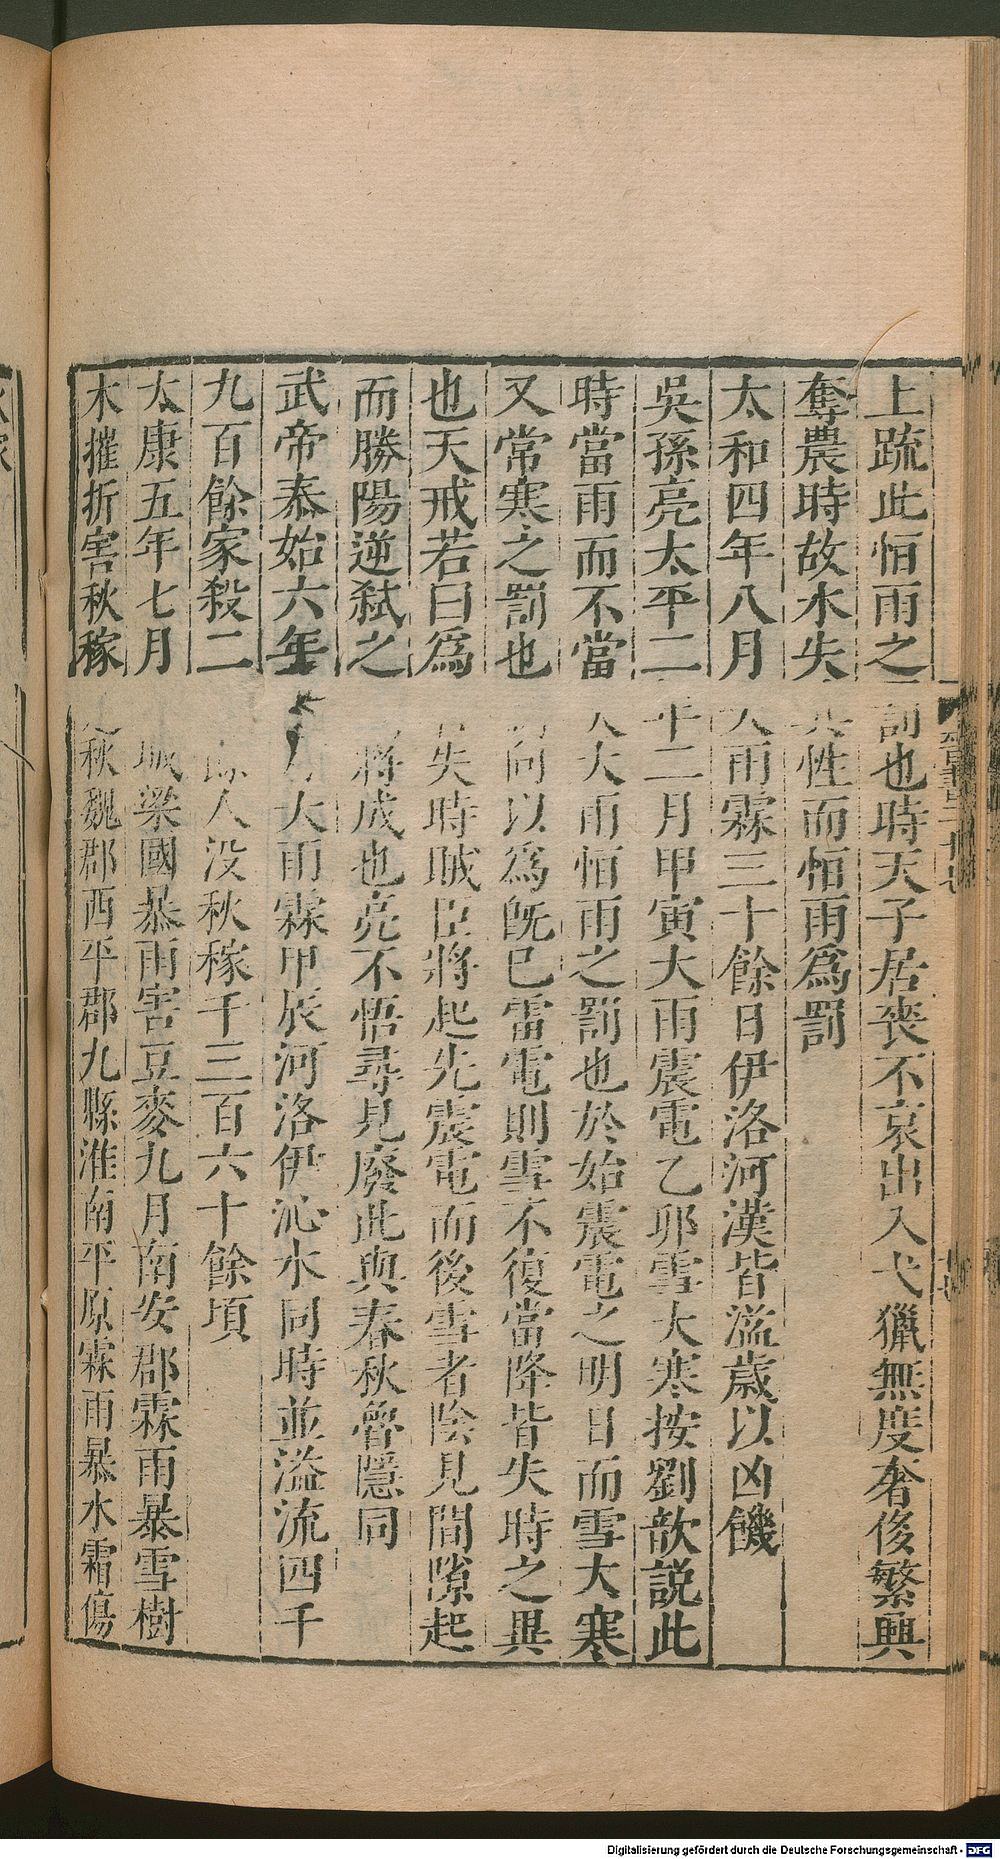 上疏此恒雨之罰也時天子居喪不哀出入弋獵無度奢侈繁興
奪農時故水失其性而恒雨爲罰
太和四年八月大雨霖三十餘日伊洛河漢皆溢歲以凶饑
吳孫亮太平二年二月甲寅大雨震電乙卯雪大寒按劉歆説此
時當雨而不當大大雨恒雨之罰也於始震電之明日而雪大寒
又常寒之罰也劉向以爲旣已雷電則雪不復當降皆失時之異
也天戒若曰爲君失時賊臣將起先震電而後雪者陰見間隙起
而勝陽逆弑之禍將成也亮不悟尋見廢此與春秋魯隱同
武帝泰始六年六月大雨霖甲辰河洛伊沁水同時並溢流四千
九百餘家殺二百餘人没秋稼千三百六十餘頃
太康五年七月任城梁國暴雨害豆麥九月南安郡霖雨暴雪樹
木摧折害秋稼是秋魏郡西平郡九縣淮南平原霖雨暴水霜傷
Digitalisierung gefördert durch die Deutsche Forschungsgemeinschaft - DFG